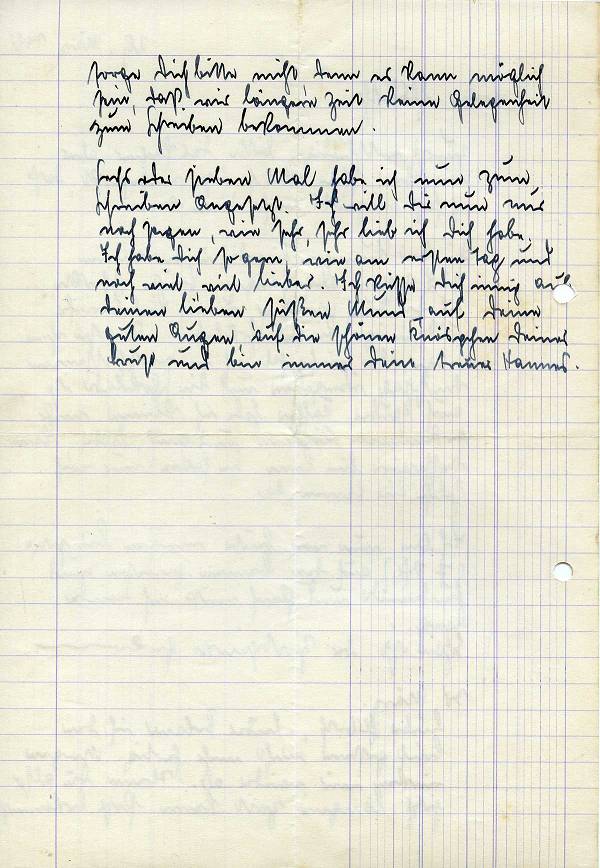 sorge Dich bitte nicht, denn es kann möglich
sein, daß wir längere Zeit keine Gelegenheit
zum Schreiben bekommen.
Sechs oder sieben Mal habe ich nun zum
Schreiben angesetzt. Ich will Dir nun nur
noch sagen, wie sehr, sehr lieb ich Dich habe.
Ich habe Dich so gern, wie am ersten Tag und
noch viel, viel lieber. Ich küsse Dich innig auf
deinen lieben süßen Mund, auf deine
guten Augen, auf die schönen Knöspchen deiner
Brust und bin immer dein treuer Hannes.